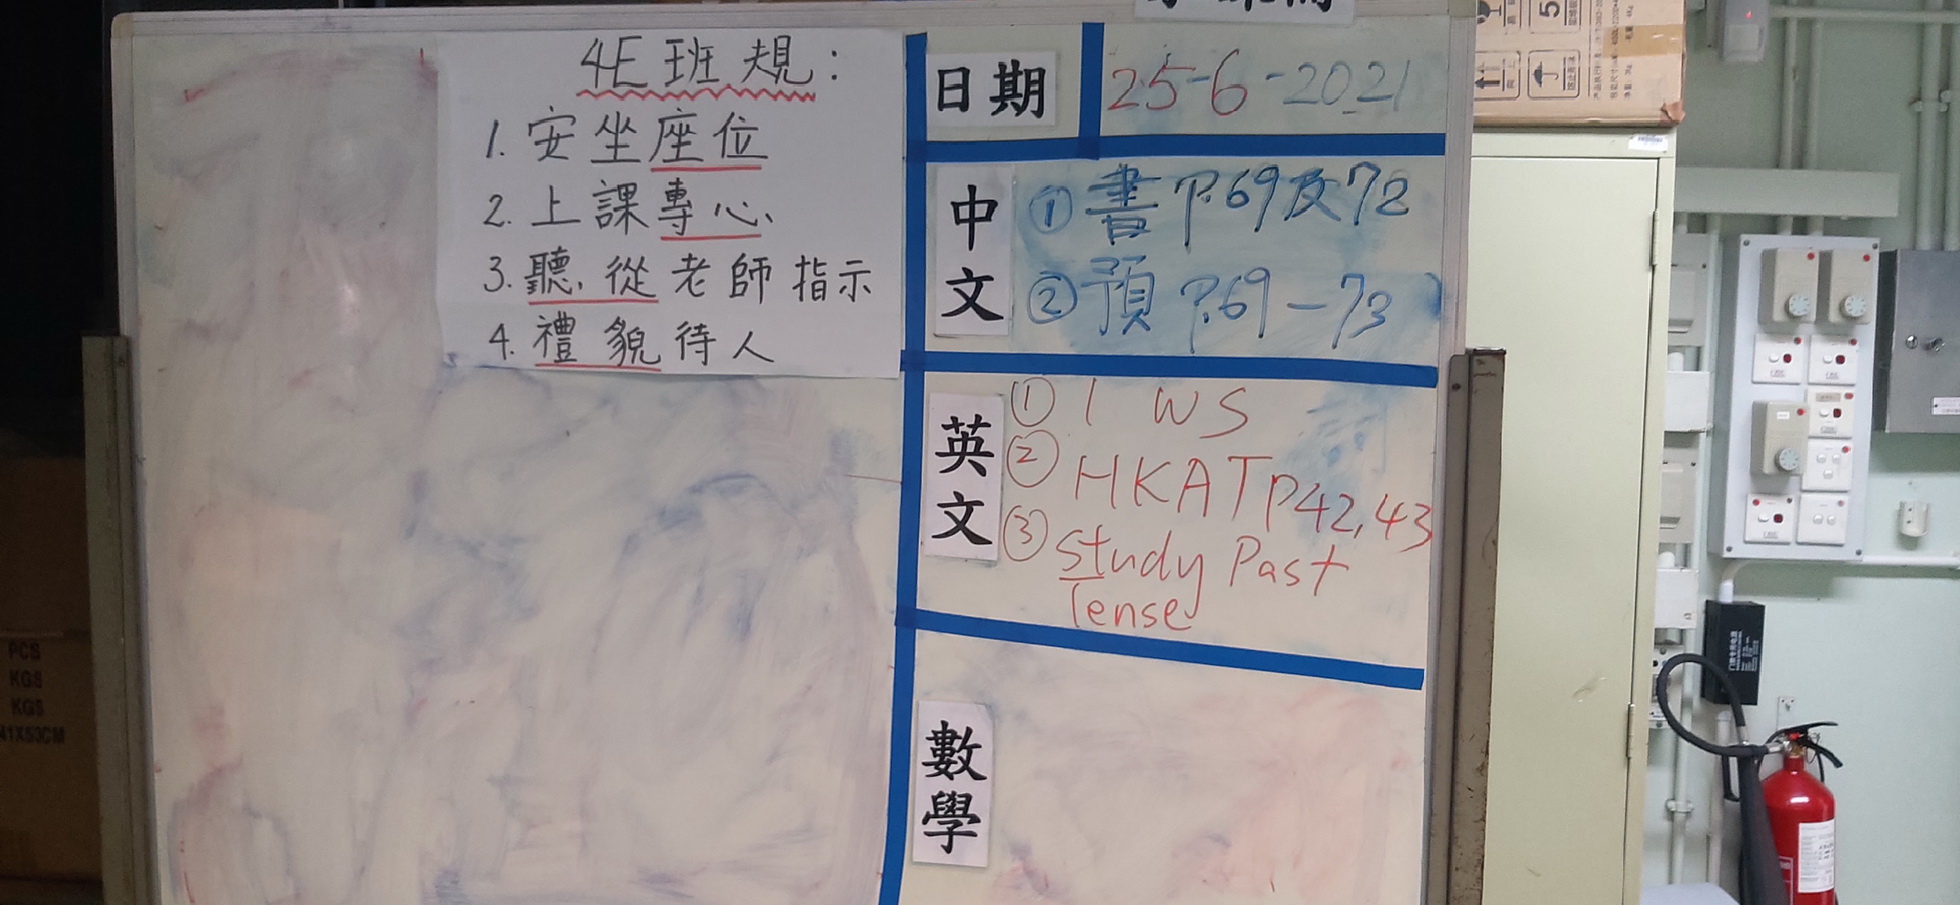 4E班規：
1. 安坐座位
2. 上課專心
3. 聽從老師指示
4. 禮貌待人
日期
25-6-2021
中文
① 書 P.69及72
② 預 P.69-73
英文
① 1 WS
② HKAT P42,43
③ Study Past
Tense
數學
PCS
KGS
KGS
41X53CM
5